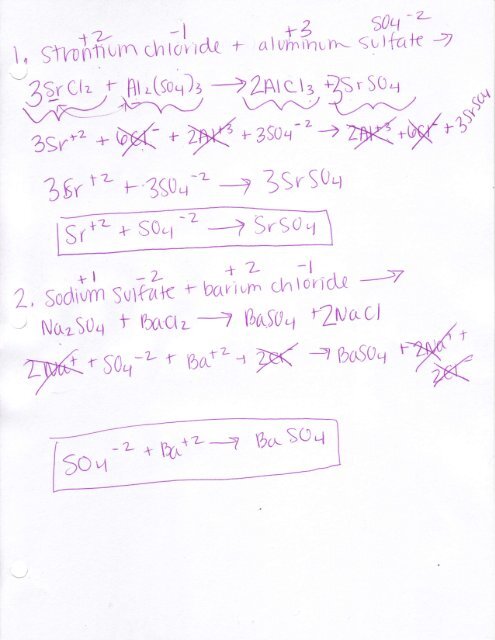 +2 -1 +3 SO4 -2
1. Strontium chloride + aluminum sulfate →
3SrCl2 + Al2(SO4)3 → 2AlCl3 + 3SrSO4
3Sr+2 + 6Cl- + 2Al+3 + 3SO4-2 → 2Al+3 + 6Cl- + 3SrSO4
3Sr+2 + 3SO4-2 → 3SrSO4
Sr+2 + SO4-2 → SrSO4
+1 -2 +2 -1
2. Sodium sulfate + barium chloride →
Na2SO4 + BaCl2 → BaSO4 + 2NaCl
2Na+ + SO4-2 + Ba+2 + 2Cl- → BaSO4 + 2Na+ +
2Cl-
SO4-2 + Ba+2 → BaSO4